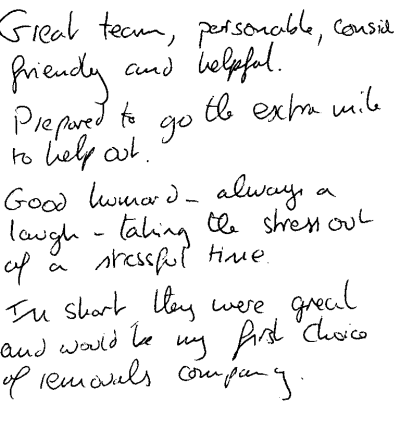 Great team, personable, consid
friendly and helpful.
Prepared to go the extra mile
to help out.
Good humord - always a
laugh - taking the stress out
of a stressful time.
In short, they were great
and would be my first choice
of removals company.